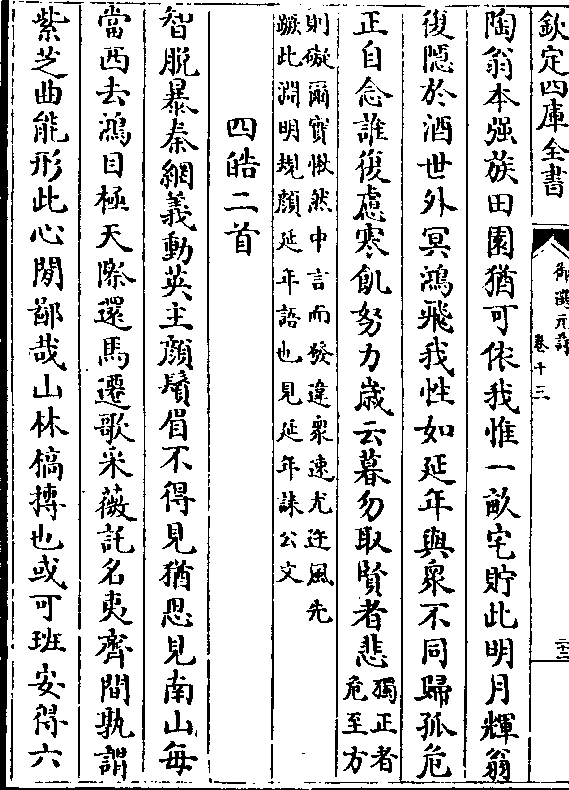 欽定四庫全書
御選元詩
卷十三
二十二
陶翁本强族田園猶可依我惟一畝宅貯此明月輝翁
復隱於酒世外冥鴻飛我性如延年與衆不同歸孤危
正自念誰復慮寒飢努力歲云暮勿取賢者悲獨正者
危至方
則礙爾實愀然中言而發違衆速尤迕風先
蹶此淵明規顔延年語也見延年誄公文
四皓二首
智脱暴秦網義動英主顔鬚眉不得見猶思見南山每
當西去鴻目極天際還馬遷歌采薇託名夷齊間孰謂
紫芝曲能形此心閒鄙哉山林槁摶也或可班安得六